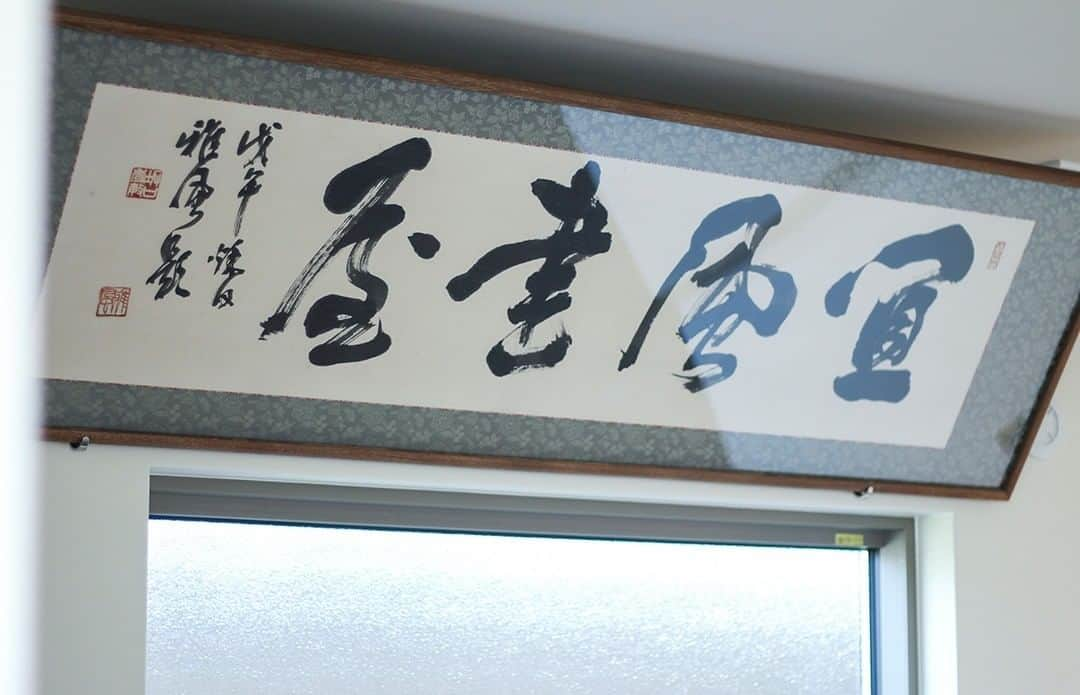 宜風書屋
戊午 秋日
雅風題